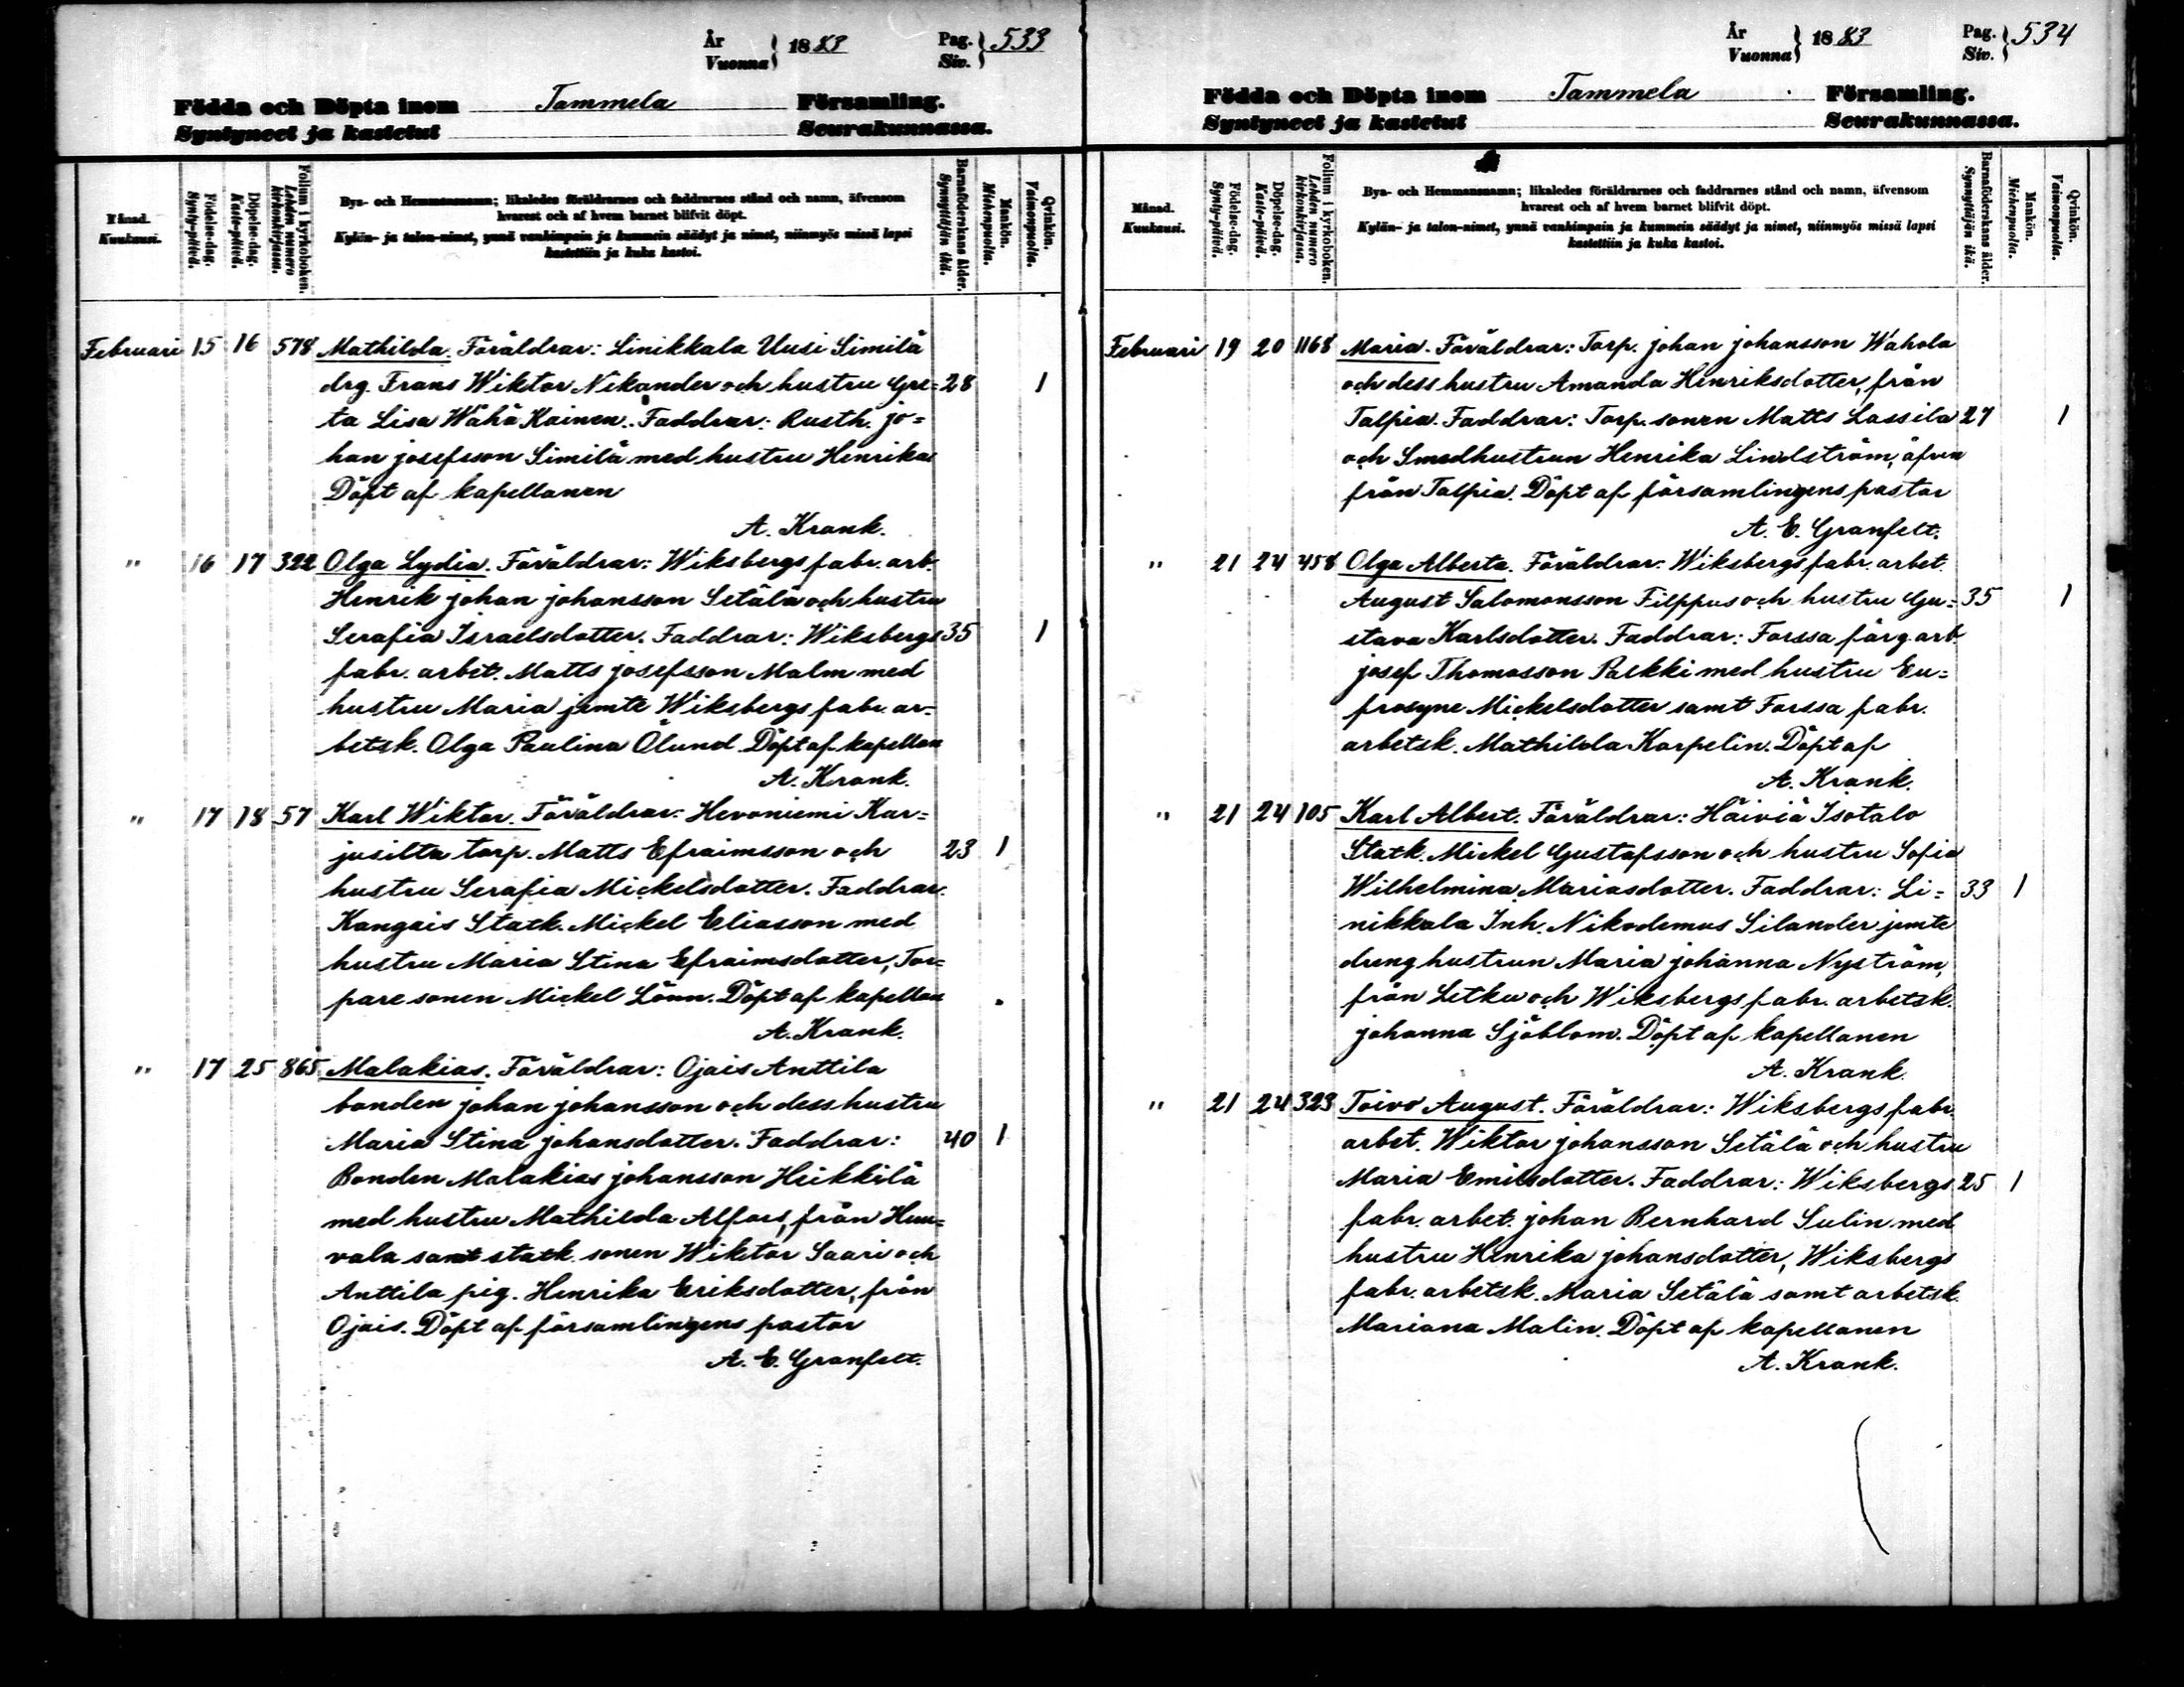 År
Vuonna } 1883
Pag.
Siv. } 533
Födda och Döpta inom Tammela Församling.
Syntyneet ja kastetut Seurakunnassa.
Månad.
Kuukausi.
Födelse-dag.
Synty-päivä.
Döpelse-dag.
Kaste-päivä.
Folium i kyrkoboken.
Lehden numero
kirkonkirjassa.
Bya- och Hemmansnamn; likaledes föräldrarnes och faddrarnes stånd och namn, äfvensom
hvarest och af hvem barnet blifvit döpt.
Kylän- ja talon-nimet, ynnä vanhimpain ja kummein säädyt ja nimet, niinmyös missä lapsi
kastettiin ja kuka kastoi.
Barnaföderskans ålder.
Synnyttäjän ikä.
Mankön.
Miehenpuolta.
Qvinkön.
Vaimonpuolta.
Februari 15 16 578 Mathilda. Föräldrar: Linikkala Uusi Similä
drg. Frans Wiktor Nikander och hustru Gre= 28 1
ta Lisa Wähä Kainen. Faddrar: Rusth. jo=
han josefsson Similä med hustru Henrika
Döpt af kapellanen
A. Krank.
" 16 17 322 Olga Lydia. Föräldrar: Wiksbergs fabr. arb.
Henrik johan johansson Setälä och hustru
Serafia Israelsdotter. Faddrar: Wiksbergs 35 1
fabr. arbet. Matts josefsson Malm med
hustru Maria jemte Wiksbergs fabr. ar-
betsk. Olga Paulina Ölund Döpt af kapellan
A. Krank.
" 17 18 57 Karl Wiktor. Föräldrar: Hevoniemi Kar=
jusilta torp. Matts Efraimsson och 23 1
hustru Serafia Mickelsdotter. Faddrar.
Kangais Statk. Mickel Eliasson med
hustru Maria Stina Efraimsdotter, Tor=
pare sonen Mickel Lönn. Döpt af kapellan
A. Krank.
" 17 25 865 Malakias. Föräldrar: Ojais Anttila
bonden johan johansson och dess hustru
Maria Stina johansdotter. Faddrar: 40 1
Bonden Malakias johansson Heikkilä
med hustru Mathilda Alfors, från Huu=
vala samt statk. sonen Wiktor Saari och
Anttila pig. Henrika Eriksdotter, från
Ojais. Döpt af församlingens pastor
A. E. Granfelt.
År
Vuonna } 1883
Pag.
Siv. } 534
Födda och Döpta inom Tammela Församling.
Syntyneet ja kastetut Seurakunnassa.
Månad.
Kuukausi.
Födelse-dag.
Synty-päivä.
Döpelse-dag.
Kaste-päivä.
Folium i kyrkoboken.
Lehden numero
kirkonkirjassa.
Bya- och Hemmansnamn; likaledes föräldrarnes och faddrarnes stånd och namn, äfvensom
hvarest och af hvem barnet blifvit döpt.
Kylän- ja talon-nimet, ynnä vanhimpain ja kummein säädyt ja nimet, niinmyös missä lapsi
kastettiin ja kuka kastoi.
Barnaföderskans ålder.
Synnyttäjän ikä.
Mankön.
Miehenpuolta.
Qvinkön.
Vaimonpuolta.
Februari 19 20 1168 Maria. Föräldrar: Torp. johan johansson Wahola
och dess hustru Amanda Henriksdotter, från
Talpia. Faddrar: Torp. sonen Matts Lassila 27 1
och Smedhustrun Henrika Lindström, äfven
från Talpia. Döpt af församlingens pastor
A. E. Granfelt.
" 21 24 458 Olga Alberta. Föräldrar: Wiksbergs fabr. arbet.
August Salomonsson Filppus och hustru Gu= 35 1
stava Karlsdotter. Faddrar: Forssa färg. arb.
josef Thomasson Palkki med hustru Eu=
frosyne Mickelsdotter samt Forssa fabr.
arbetsk. Mathilda Karpelin. Döpt af
A. Krank.
" 21 24 105 Karl Albert. Föräldrar: Häiviä Isotalo
Statk. Mickel Gustafsson och hustru Sofia
Wilhelmina Mariasdotter. Faddrar: Li= 33 1
nikkala Inh. Nikodemus Silander jemte
dreng hustrun Maria johanna Nyström,
från Letku och Wiksbergs fabr. arbetsk.
johanna Sjöblom. Döpt af kapellanen
A. Krank.
" 21 24 323 Toivo August. Föräldrar: Wiksbergs fabr.
arbet. Wiktor johansson Setälä och hustru
Maria Emilsdotter. Faddrar: Wiksbergs 25 1
fabr. arbet. johan Bernhard Sulin med
hustru Henrika johansdotter, Wiksbergs
fabr. arbetsk. Maria Setälä samt arbetsk.
Mariana Malin. Döpt af kapellanen
A. Krank.